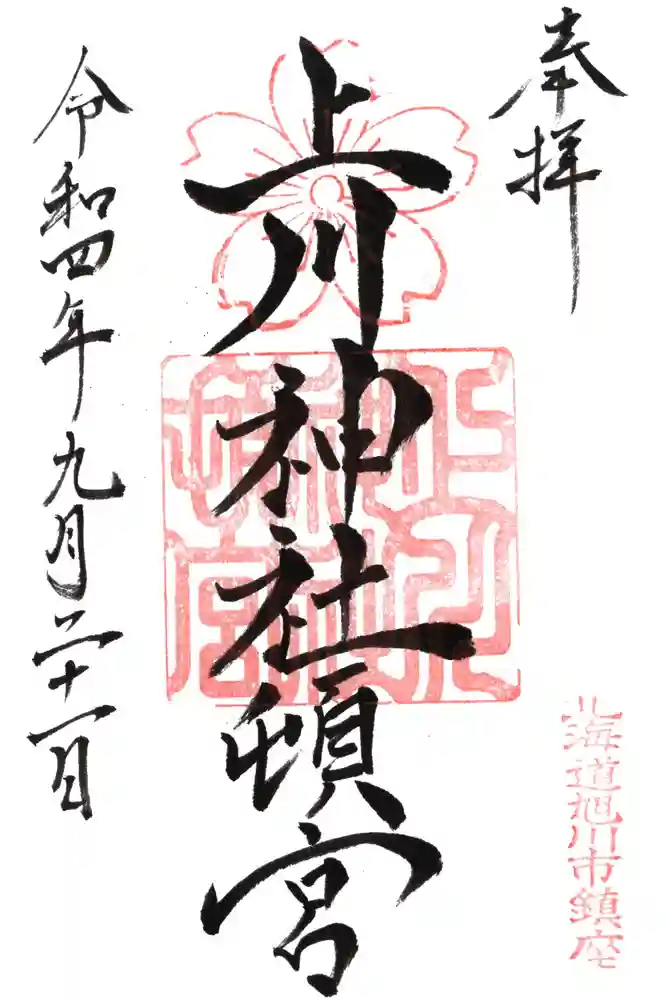 奉拝
北海道旭川市鎮座
上川神社頓宮
令和四年九月二十一日